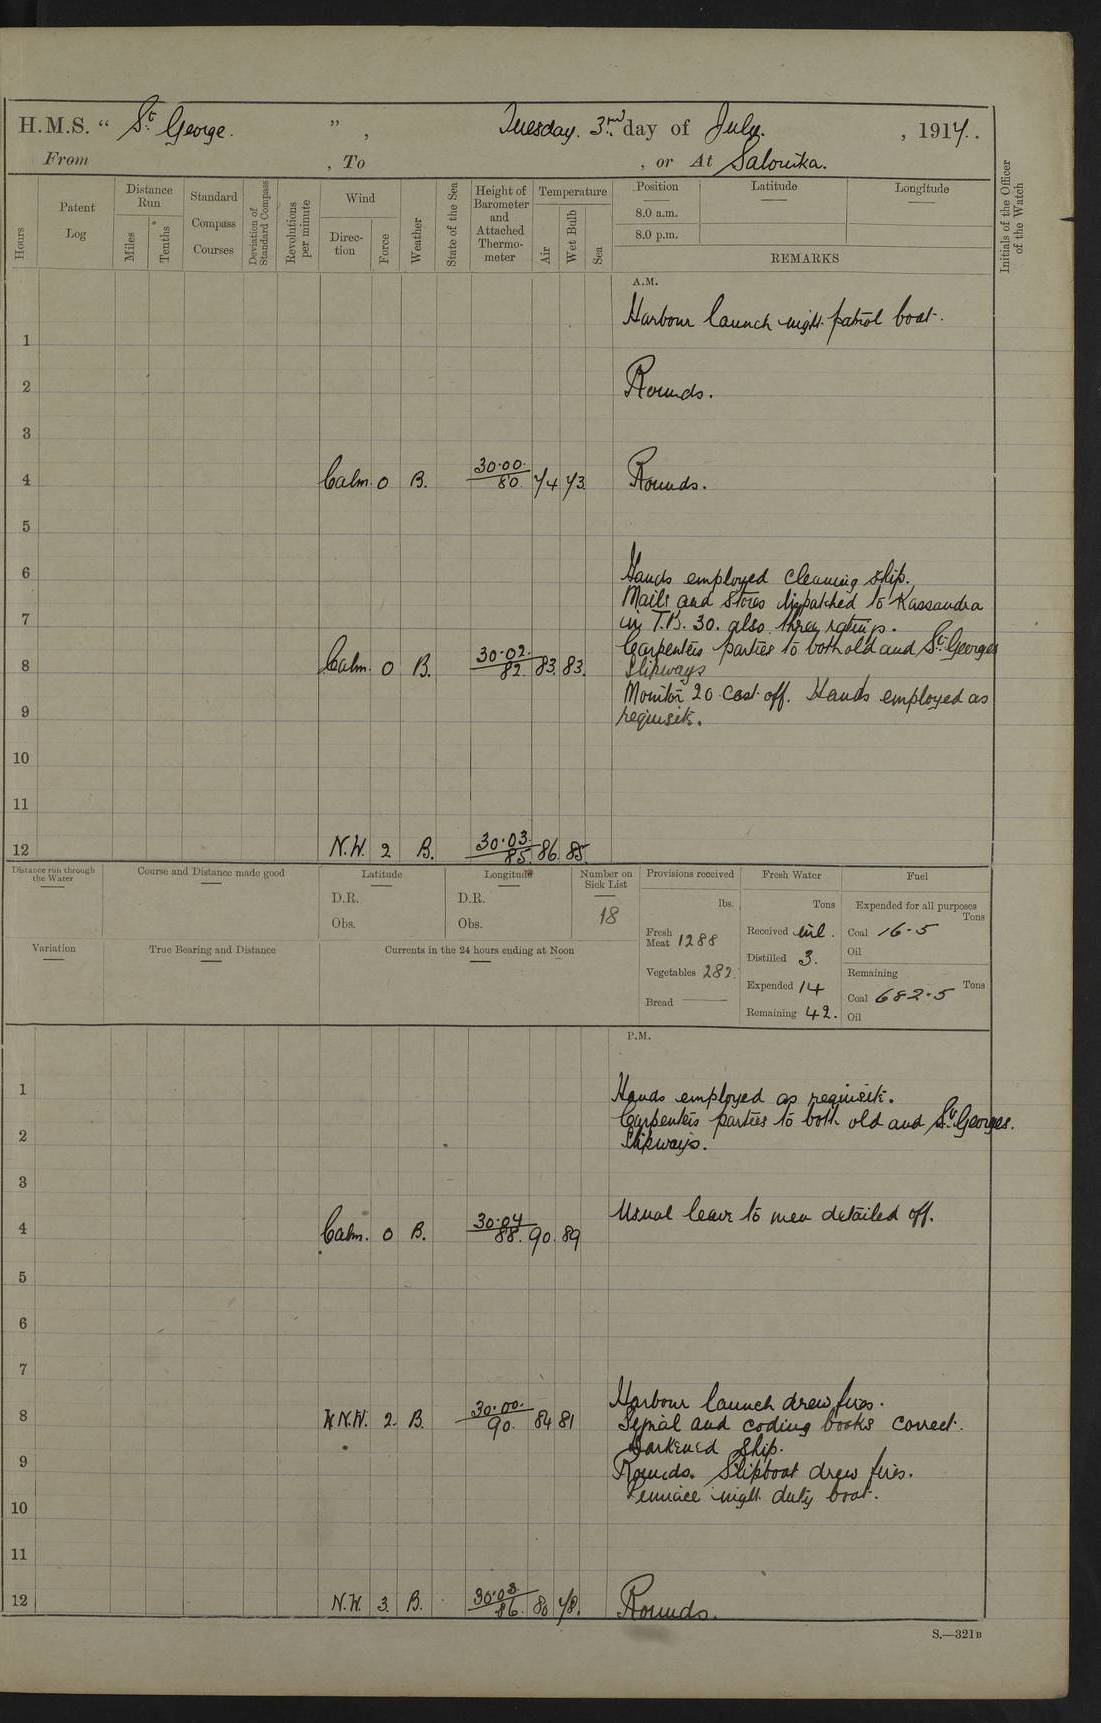 H.M.S. “ St. George. ” , Tuesday. 3rd day of July. , 1917.
From , To , or At Salonika.
Hours
Patent Log
Distance Run
Miles
Tenths
Standard Compass Courses
Deviation of Standard Compass
Revolutions per minute
Wind
Direction
Force
Weather
State of the Sea
Height of Barometer and Attached Thermometer
Temperature
Air
Wet Bulb
Sea
Position Latitude Longitude
8.0 a.m.
8.0 p.m.
REMARKS
Initials of the Officer of the Watch
A.M.
Harbour launch night patrol boat.
1
2 Rounds.
3
4 Calm. 0 B. 30.00. 80 74 73 Rounds.
5
6 Hands employed cleaning ship.
Mails and stores dispatched to Kassandra
7 in T.B. 30. also three ratings.
Carpenters parties to both old and St. Georges
8 Calm. 0 B. 30.02. 82. 83. 83. Slipways
Monitor 20 cast off. Hands employed as
9 requisite.
10
11
12 N.W. 2 B. 30.03. 85. 86. 85.
Distance run through the Water
Course and Distance made good
Latitude
D.R.
Obs.
Longitude
D.R.
Obs.
Number on Sick List
18
Provisions received
lbs.
Fresh Meat 1288
Vegetables 282.
Bread
Fresh Water
Tons
Received nil.
Distilled 3.
Expended 14
Remaining 42.
Fuel
Expended for all purposes
Tons
Coal 16.5
Oil
Remaining
Tons
Coal 682.5
Oil
Variation
True Bearing and Distance
Currents in the 24 hours ending at Noon
P.M.
1 Hands employed as requisite.
Carpenters parties to both old and St. Georges.
2 Slipways.
3
Usual leave to men detailed off.
4 Calm. 0 B. 30.04 88. 90. 89
5
6
7
Harbour launch drew fires.
8 W.N.W. 2. B. 30.00. 90. 84 81 Signal and coding books correct.
Darkened ship.
9 Rounds. Slipboat drew fires.
Pinnace night duty boat.
10
11
12 N.W. 3. B. 30.03 86. 80 78. Rounds.
S.—321B